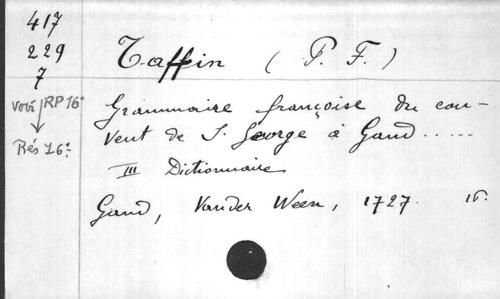 417
229
7
Taffin (P. F.)
RP 16°
Rés 16°
Grammaire françoise du cou-
vent de S. George à Gand .....
III Dictionnaire
Gand, Vander Ween, 1727. 16°.